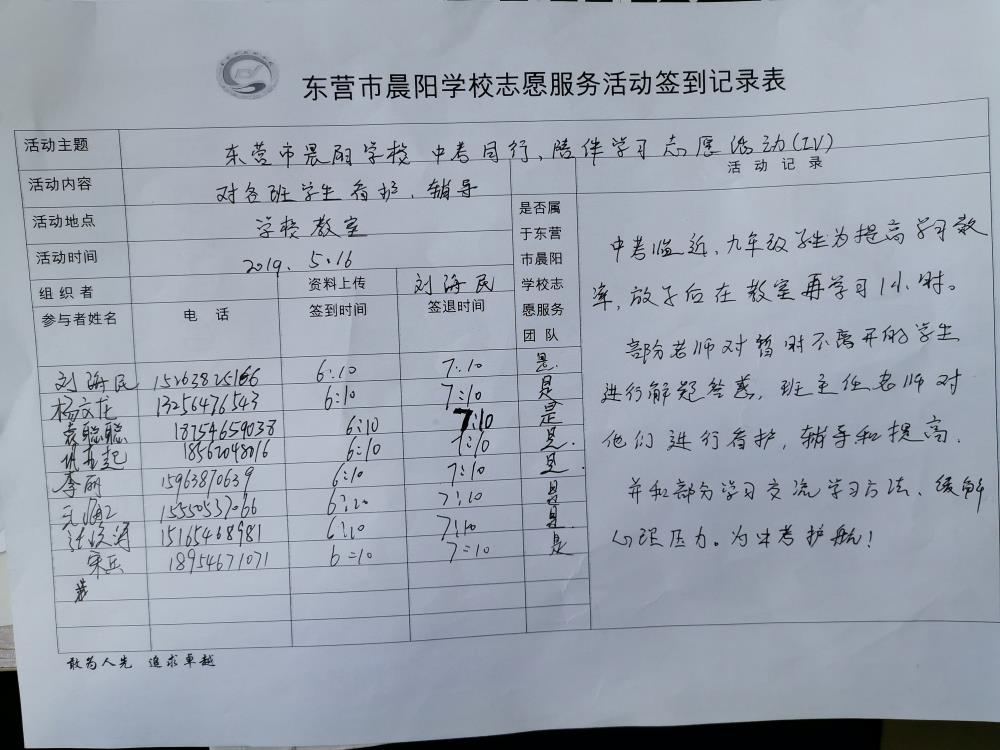 东营市晨阳学校志愿服务活动签到记录表
活动主题 东营市晨阳学校 中考同行、陪伴学习 志愿活动(IV)
活动内容 对各班学生看护、辅导
活动地点 学校教室
活动时间 2019. 5.16
组织者 资料上传 刘海民
参与者姓名 电话 签到时间 签退时间
是否属
于东营
市晨阳
学校志
愿服务
团队
刘海民 15263825166 6:10 7:10 是
杨文龙 13256476543 6:10 7:10 是
袁聪聪 18754659038 6:10 7:10 是
18562048016 6:10 7:10 是.
李丽 15963870639 6:10 7:10 是
15550537066 7:10 是
15165468981 6:10 7:10 是.
宋兵 18954671071 6=10 7=10 是
活动记录
中考临近、九年级学生为提高学习效
率,放学后在教室再学习1小时。
部份老师对暂时不离开的学生
进行解疑答惑,班主任老师对
他们进行看护,辅导和提高.
并和部分学习交流学习方法、缓解
心理压力。为中考护航!
敢为人先 追求卓越